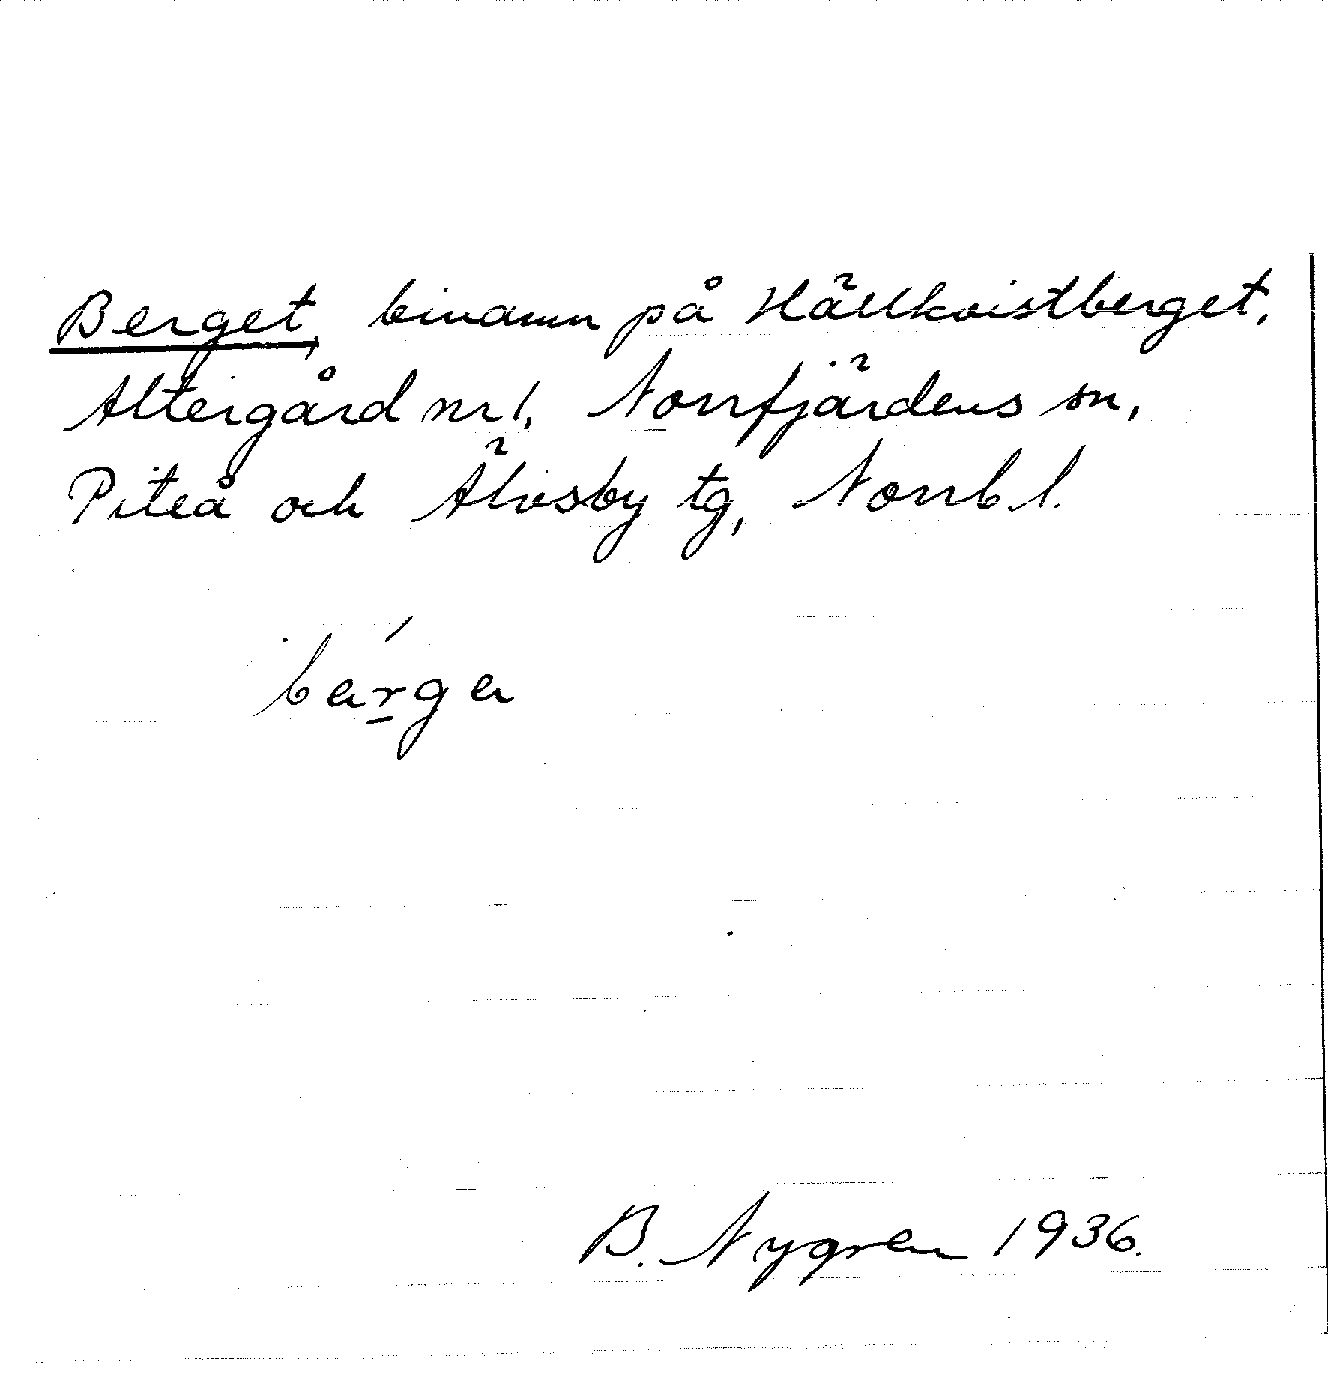 Berget, binamn på Hällkvistberget,
Altergård nr 1, Norrfjärdens sn,
Piteå och Älvsby tg, Norrb l.
bärgä
B. Nygren 1936.